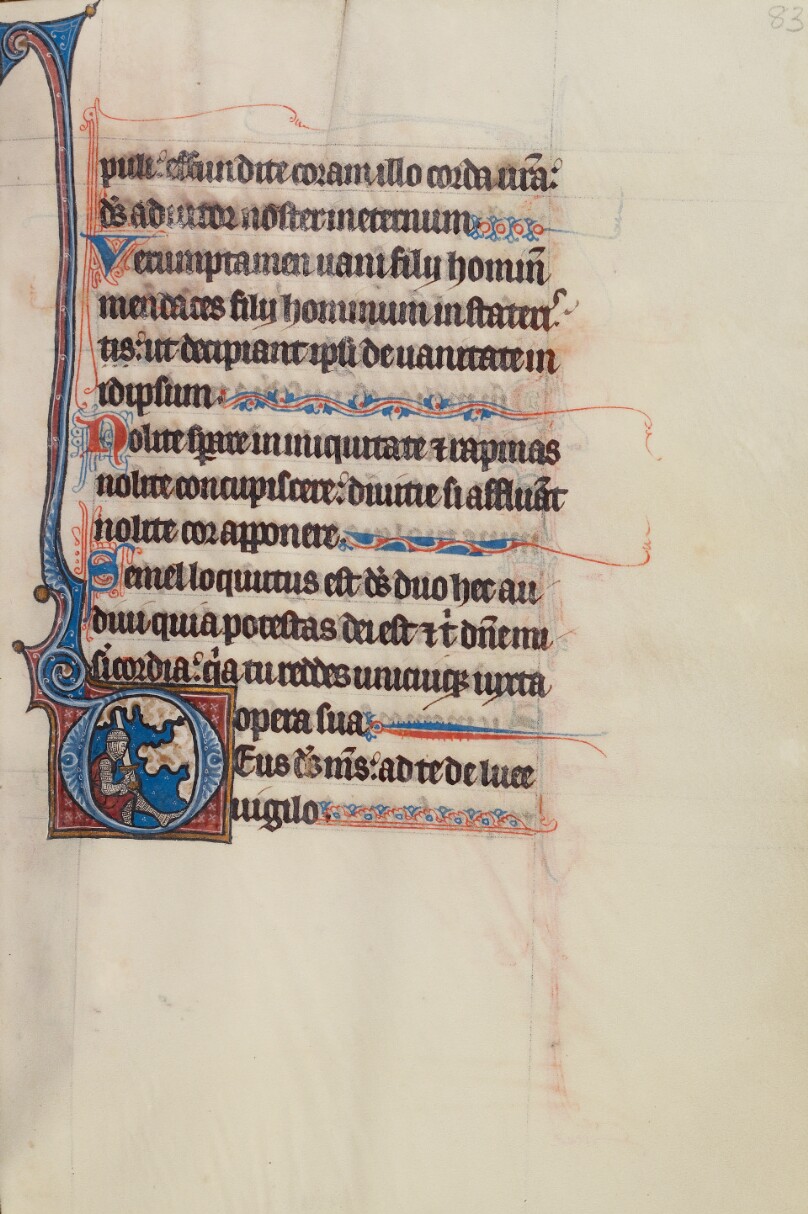 83
puli: effundite coram illo corda ur̄a:
ds̄ adiutor noster in eternum
Verumptamen uani filij homin̄
mendaces filij hominum in stateris
tis: ut decipiant ipsi de uanitate in
idipsum.
Nolite sꝑare in iniquitate ⁊ rapinas
nolite concupiscere: diuitie si affluāt
nolite cor apponere.
Semel loquutus est ds̄ duo hec au
diui quia potestas dei est ⁊ t̄ dn̄e mi
s̄icordia: q̄a tu reddes unicuiqꝫ iuxta
opera sua
Deus ds̄ ms̄: ad te de luce
uigilo.